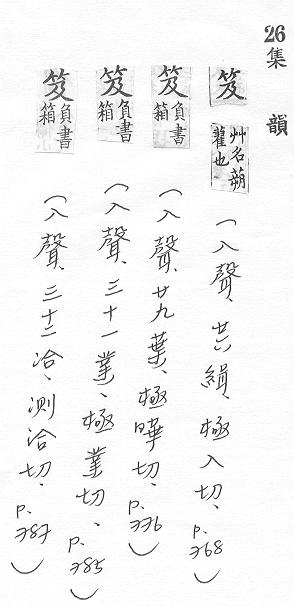 26集 韻
笈 艸名蒴藋也 (入聲、廿六緝、極入切、p.768)
笈 負書箱 (入聲、廿九葉、極曄切、p.776)
笈 負書箱 (入聲、三十一業、極業切、p.785)
笈 負書箱 (入聲、三十二洽、測洽切、p.787)